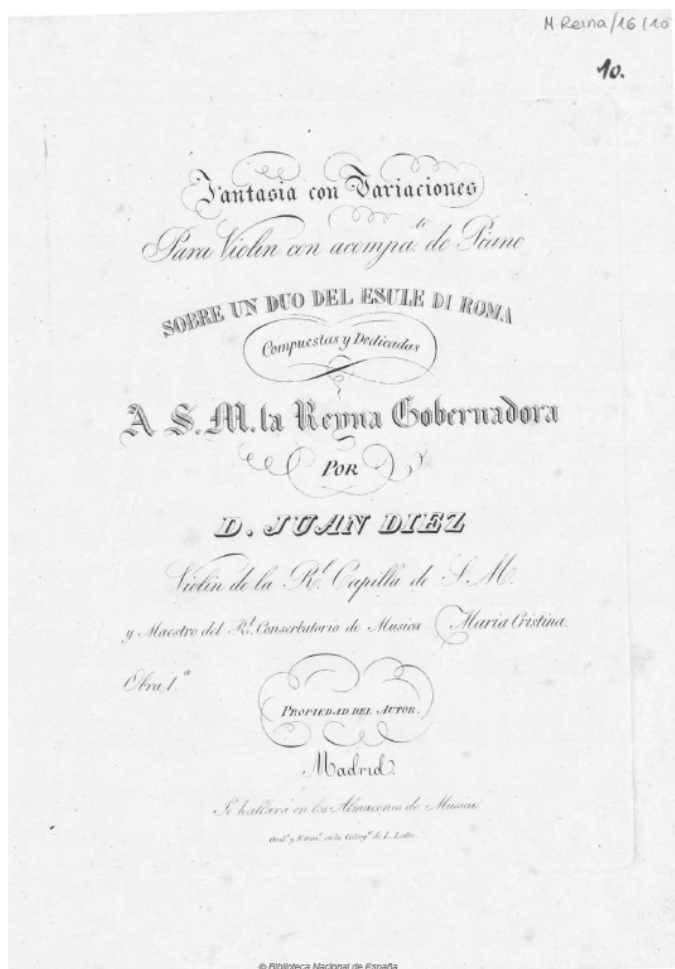 M. Reina/16 (10
10.
Fantasia con Variaciones
Para Violin con acompa.to de Piano
SOBRE UN DUO DEL ESULE DI ROMA
Compuestas y Dedicadas
A S. M. la Reyna Gobernadora
POR
D. JUAN DIEZ
Violin de la Rl. Capilla de S. M.
y Maestro del Rl. Conserbatorio de Musica Maria Cristina.
Obra 1.a
PROPIEDAD DEL AUTOR.
Madrid.
Se hallará en los Almacenes de Musica.
en la de L. Lodre.
© Biblioteca Nacional de España